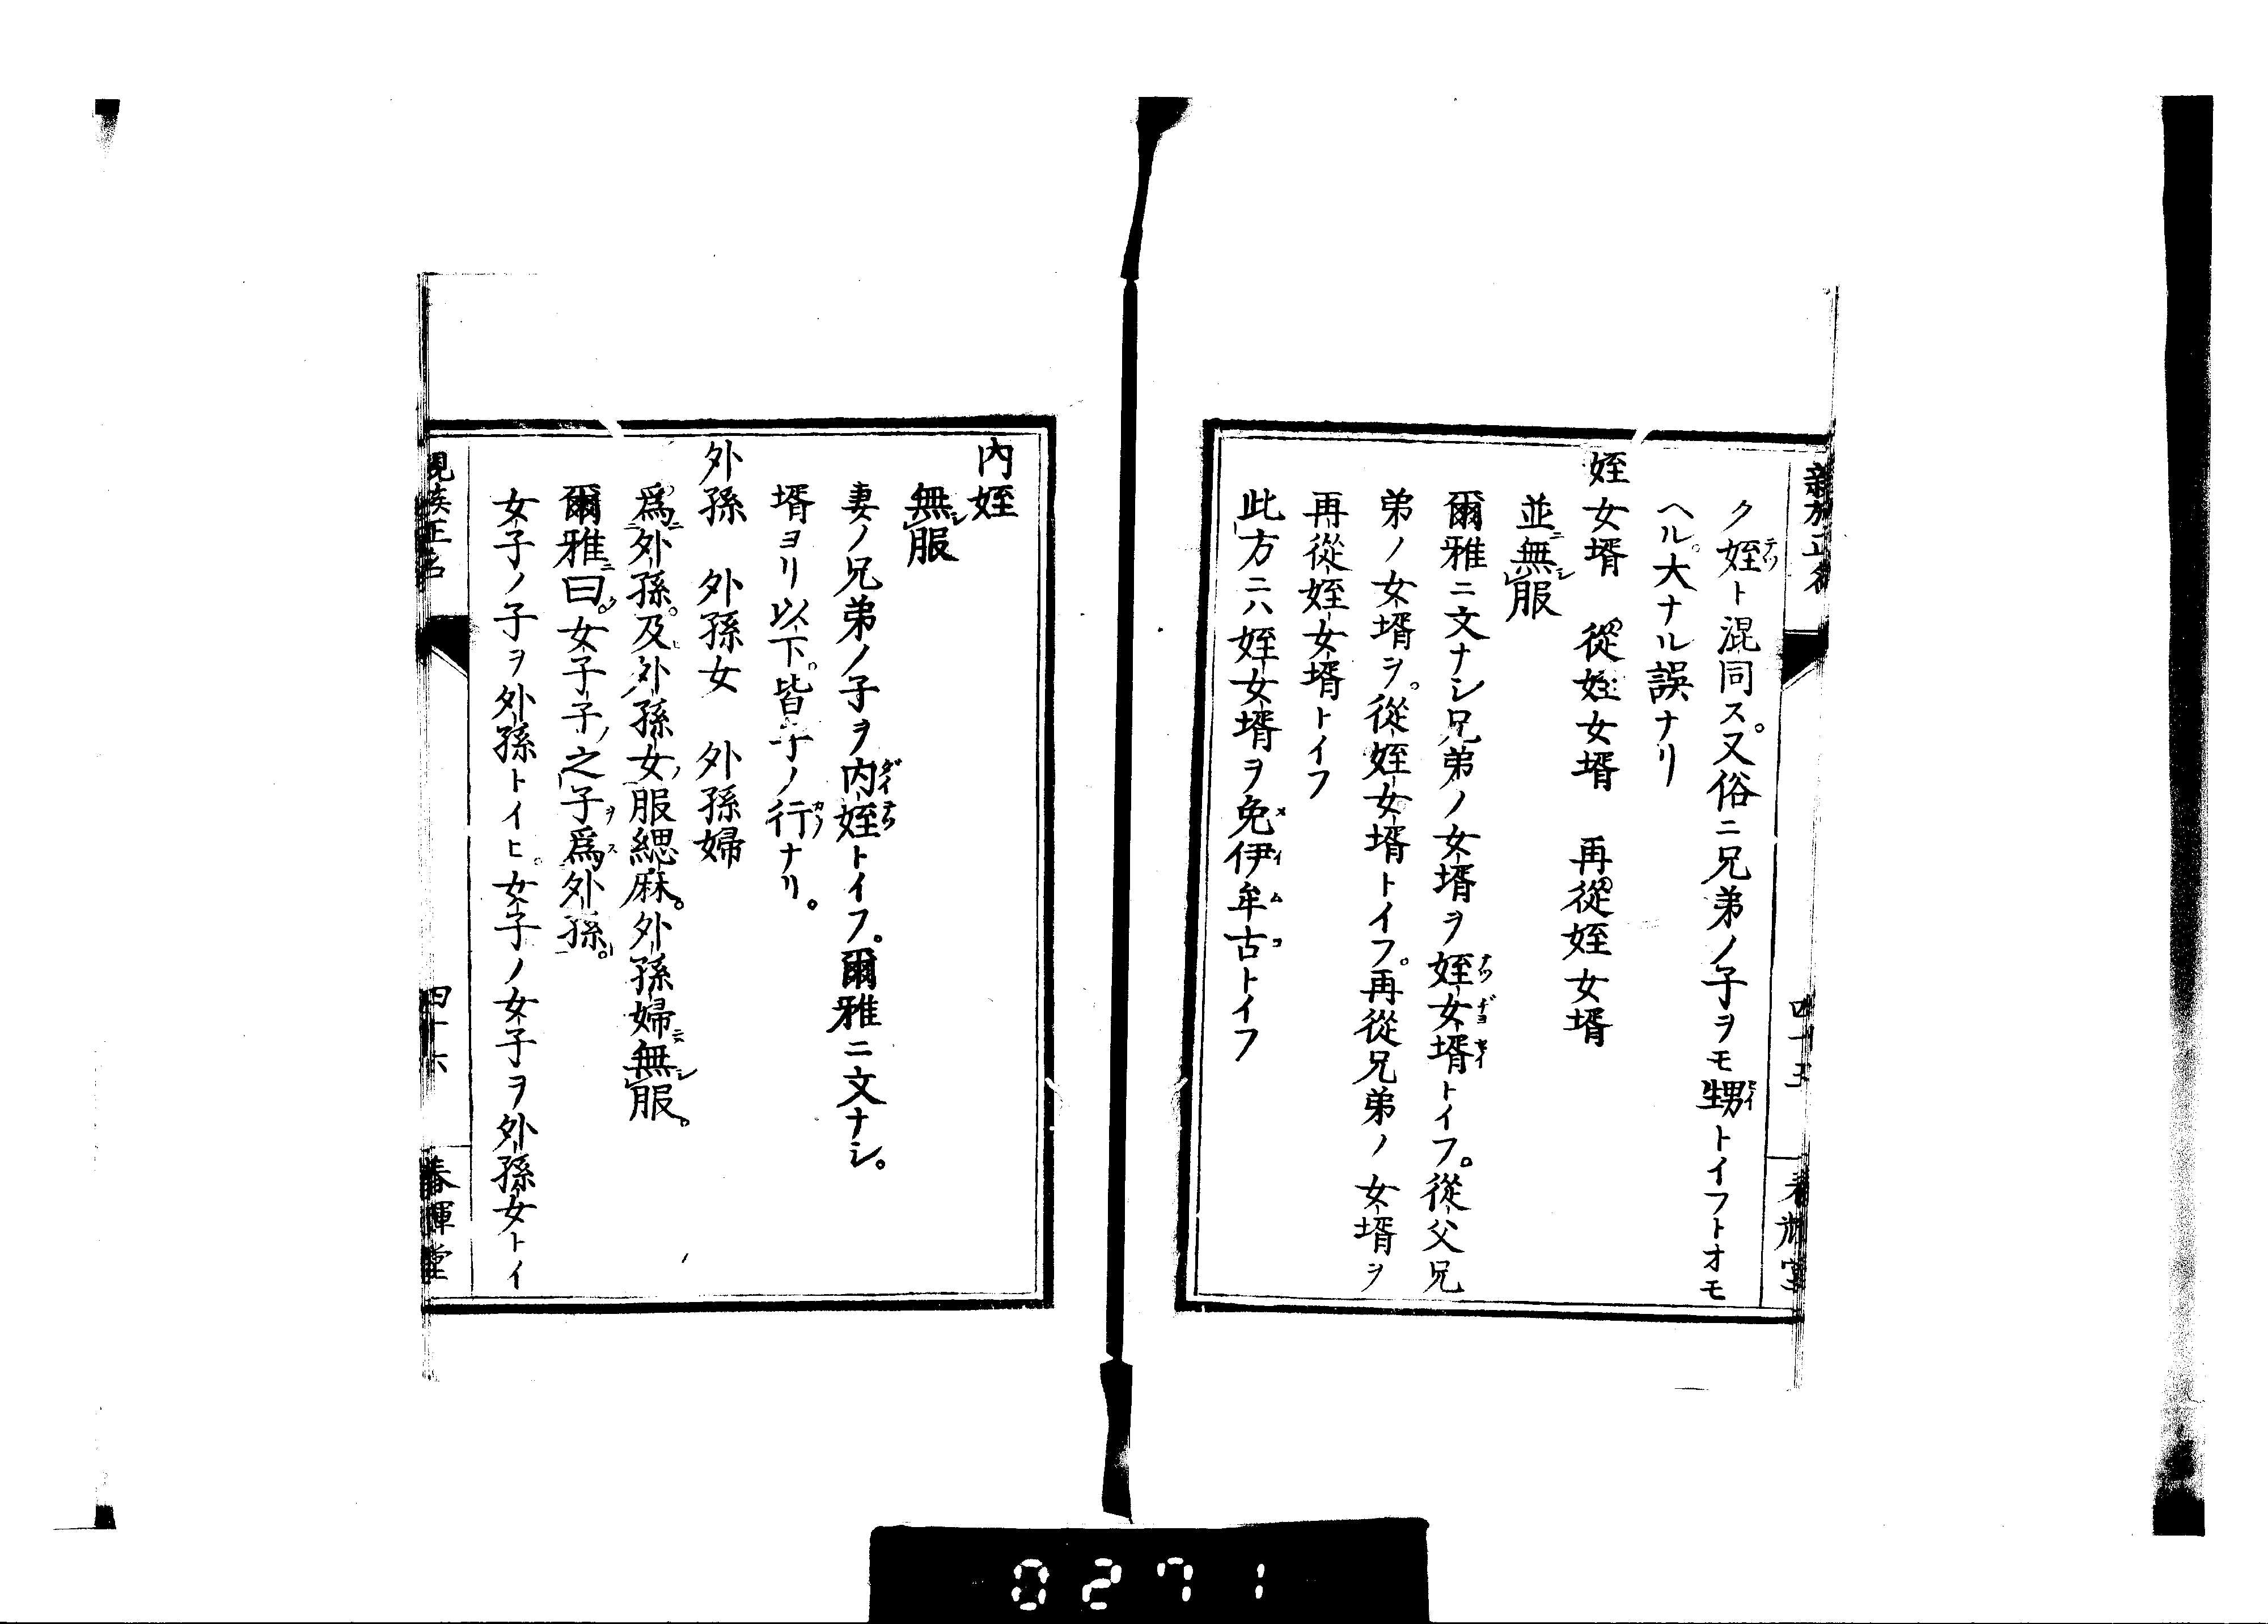 親族正名
四十五
春輝堂
ク姪ト混同ス。又俗ニ兄弟ノ子ヲモ甥トイフトオモ
ヘル。大ナル誤ナリ
姪女壻　從姪女壻　再從姪女壻
並無服
爾雅ニ文ナシ兄弟ノ女壻ヲ姪女壻トイフ。從父兄
弟ノ女壻ヲ。從姪女壻トイフ。再從兄弟ノ女壻ヲ
再從姪女壻トイフ
此方ニハ姪女壻ヲ免伊牟古トイフ
內姪
無服
妻ノ兄弟ノ子ヲ內姪トイフ。爾雅ニ文ナシ。
壻ヨリ以下。皆子ノ行ナリ。
外孫　外孫女　外孫婦
爲外孫。及外孫女服緦麻。外孫婦無服。
爾雅曰。女子子之子爲外孫。
女子ノ子ヲ外孫トイヒ。女子ノ女子ヲ外孫女トイ
親族正名
四十六
春輝堂
0271